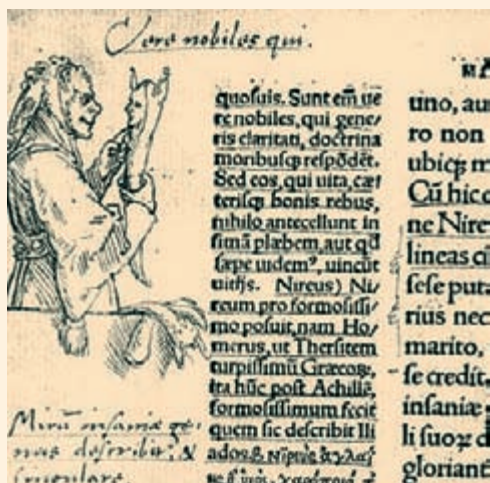 Vere nobiles qui.
quosuis. Sunt em̃ ue
re nobiles, qui gene/
ris claritati, doctrina
moribusq; respõdēt.
Sed eos, qui uita, cæt
terisq; bonis rebus,
nihilo antecellunt in
fimã plæbem, aut qđ
sæpe uidemꝰ, uincũt
uitijs. Nireus) Ni/
reum pro formosissi/
mo posuit, nam Ho/
merus, ut Thersitem
turpissimũ Græcoꝝ,
ita hũc post Achillẽ,
formosissimum fecit
quem sic describit Ili
ados.β. Νιρεὺς
Mirũ insaniæ ge-
nus describit, &
singulare.
MA
uno, aut
ro non
ubiq; m
Cũ hic
ne Nire
lineas cũ
sese puta
rius nec
marito,
se credit,
insaniæ
li suoꝝ d
gloriant